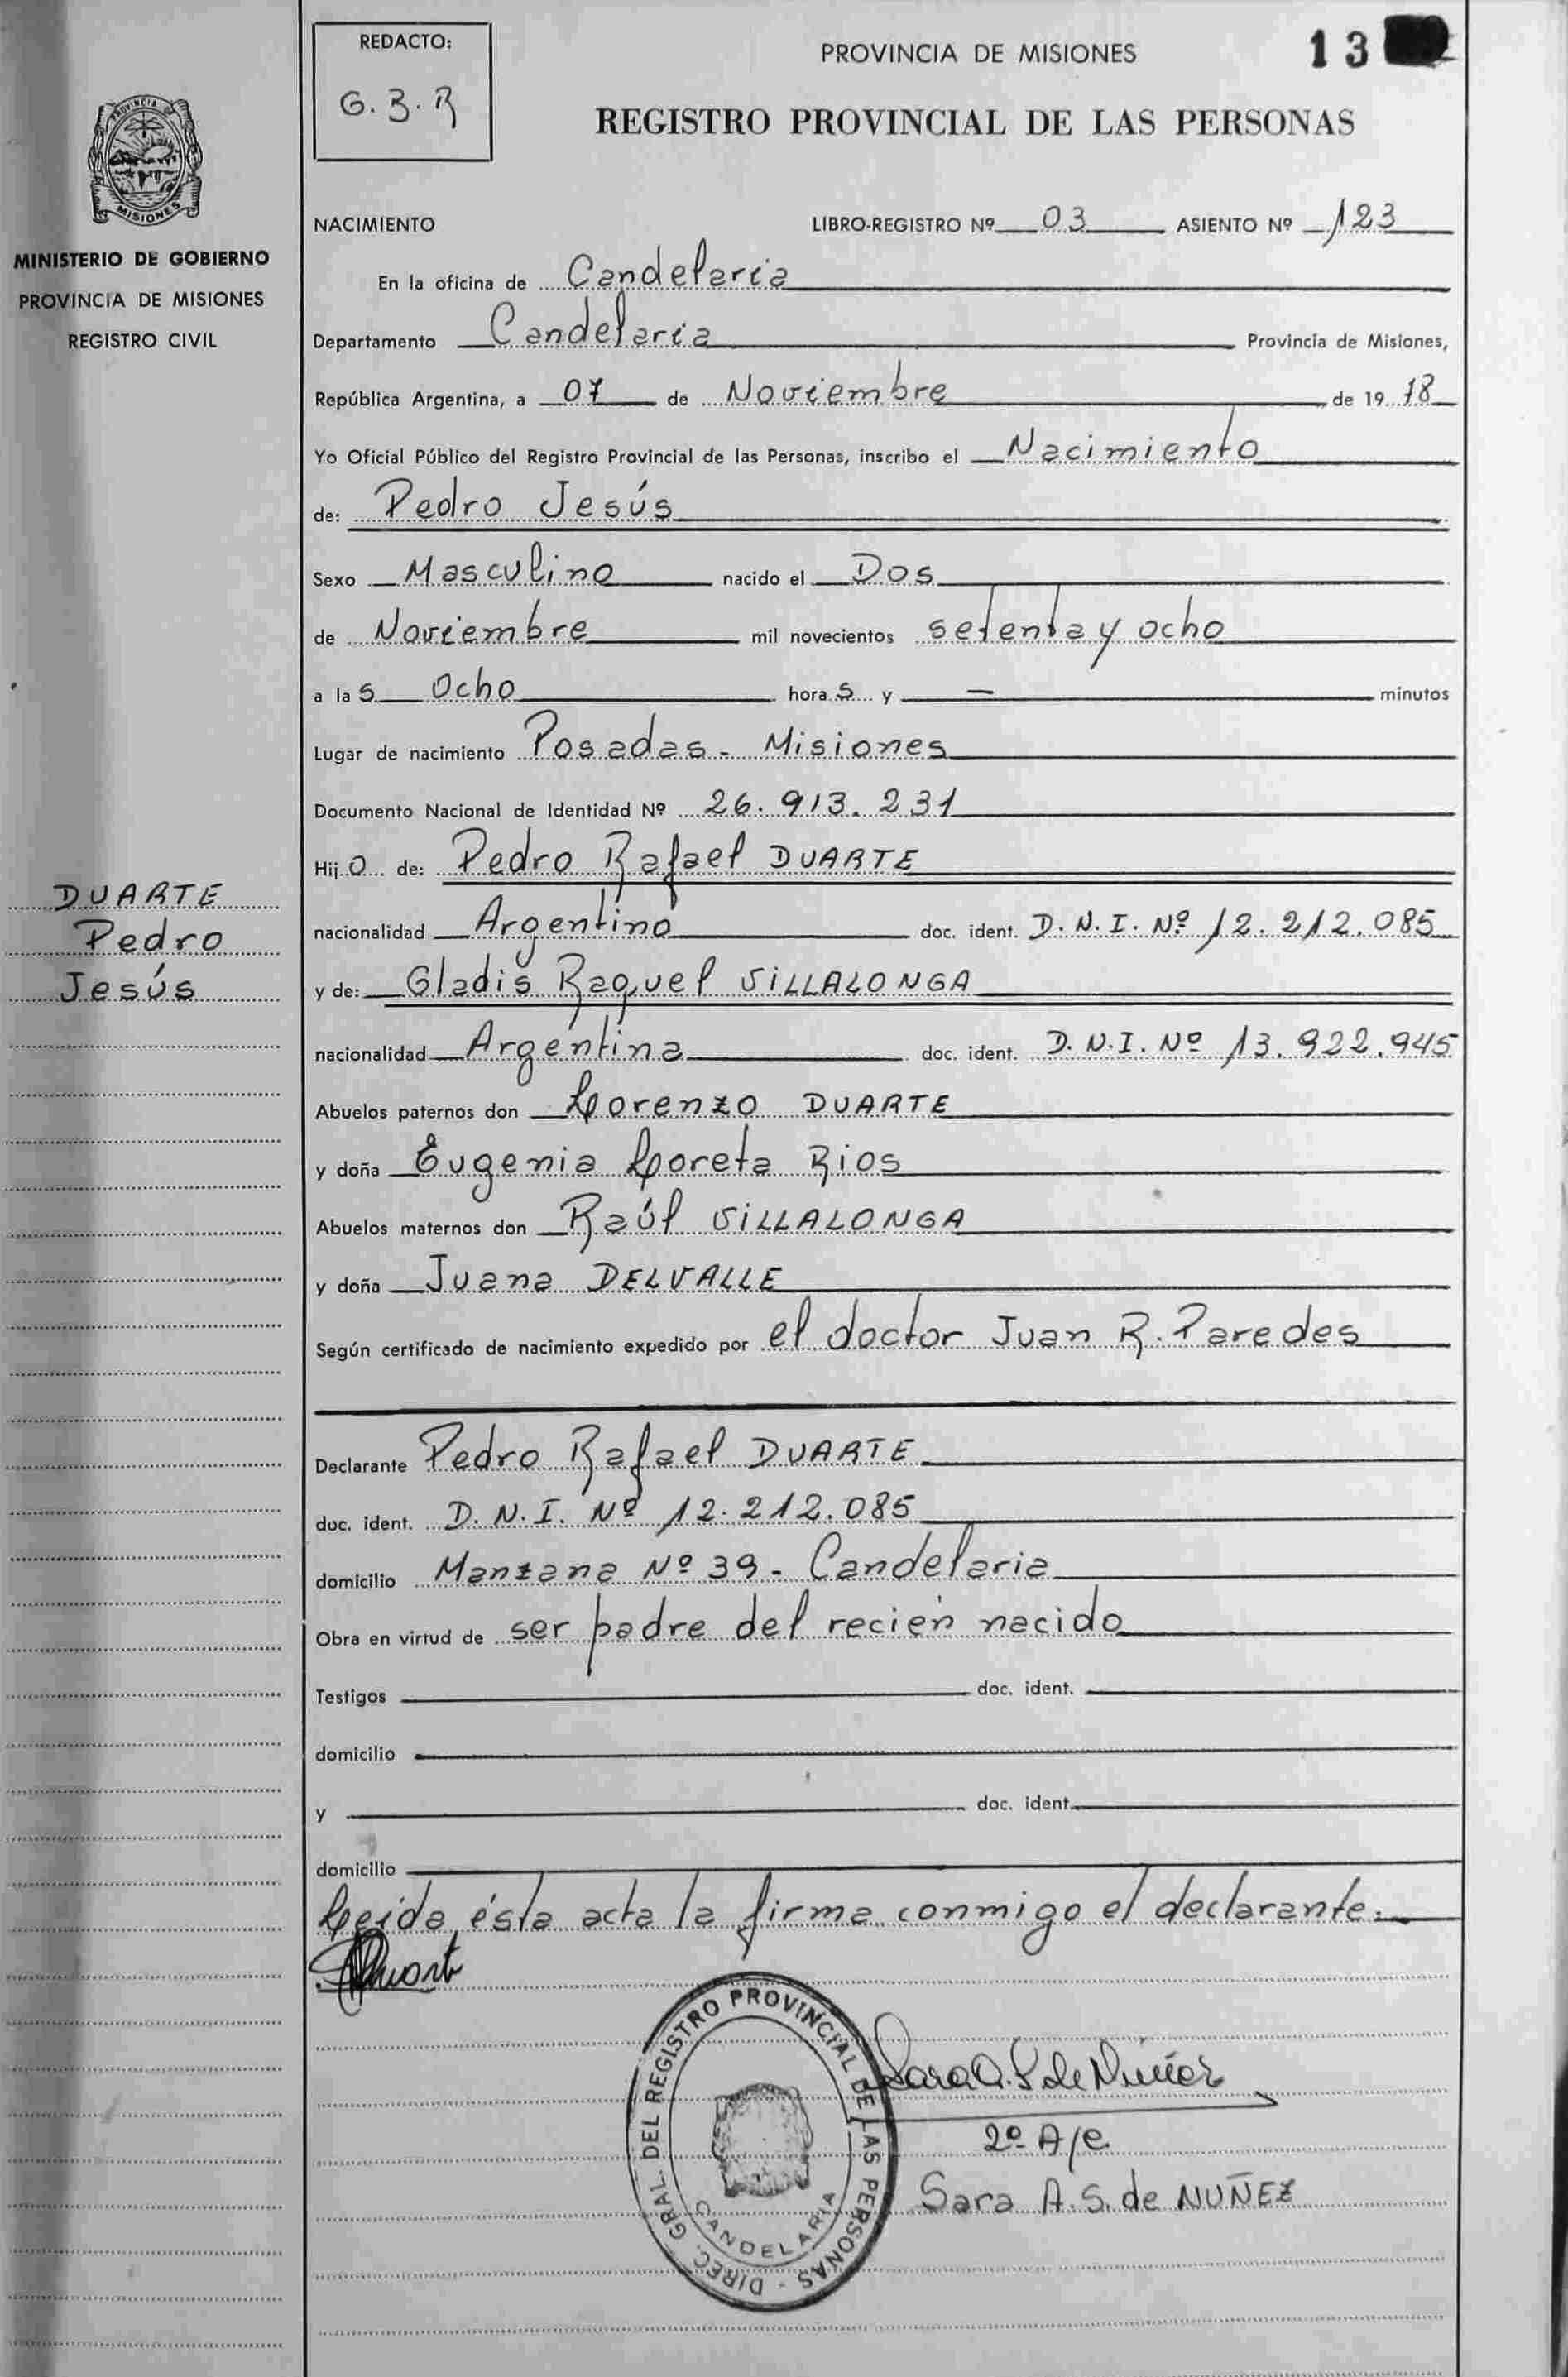 REDACTO:
G. B. R
PROVINCIA DE MISIONES
13
REGISTRO PROVINCIAL DE LAS PERSONAS
PROVINCIA DE
MISIONES
MINISTERIO DE GOBIERNO
PROVINCIA DE MISIONES
REGISTRO CIVIL
NACIMIENTO LIBRO-REGISTRO Nº 03 ASIENTO Nº 123
En la oficina de Candelaria
Departamento Candelaria Provincia de Misiones,
República Argentina, a 07 de Noviembre de 19 78
Yo Oficial Público del Registro Provincial de las Personas, inscribo el Nacimiento
de: Pedro Jesús
Sexo Masculino nacido el Dos
de Noviembre mil novecientos setenta y ocho
a las Ocho horas y — minutos
Lugar de nacimiento Posadas - Misiones
Documento Nacional de Identidad Nº 26.913.231
Hijo de: Pedro Rafael DUARTE
nacionalidad Argentino doc. ident. D.N.I. Nº 12.212.085
y de: Gladis Raquel VILLALONGA
nacionalidad Argentina doc. ident. D.N.I. Nº 13.922.945
Abuelos paternos don Lorenzo DUARTE
y doña Eugenia Loreta Rios
Abuelos maternos don Raúl VILLALONGA
y doña Juana DELVALLE
Según certificado de nacimiento expedido por el doctor Juan R. Paredes
DUARTE
Pedro
Jesús
Declarante Pedro Rafael DUARTE
doc. ident. D.N.I. Nº 12.212.085
domicilio Manzana Nº 39 - Candelaria
Obra en virtud de ser padre del recién nacido
Testigos doc. ident.
domicilio
y doc. ident.
domicilio
Leída ésta acta la firma conmigo el declarante.
Duarte
DIREC. GRAL. DEL REGISTRO PROVINCIAL DE LAS PERSONAS -
CANDELARIA
Sara A. S de Núñez
2º A/c
Sara A. S. de NUÑEZ